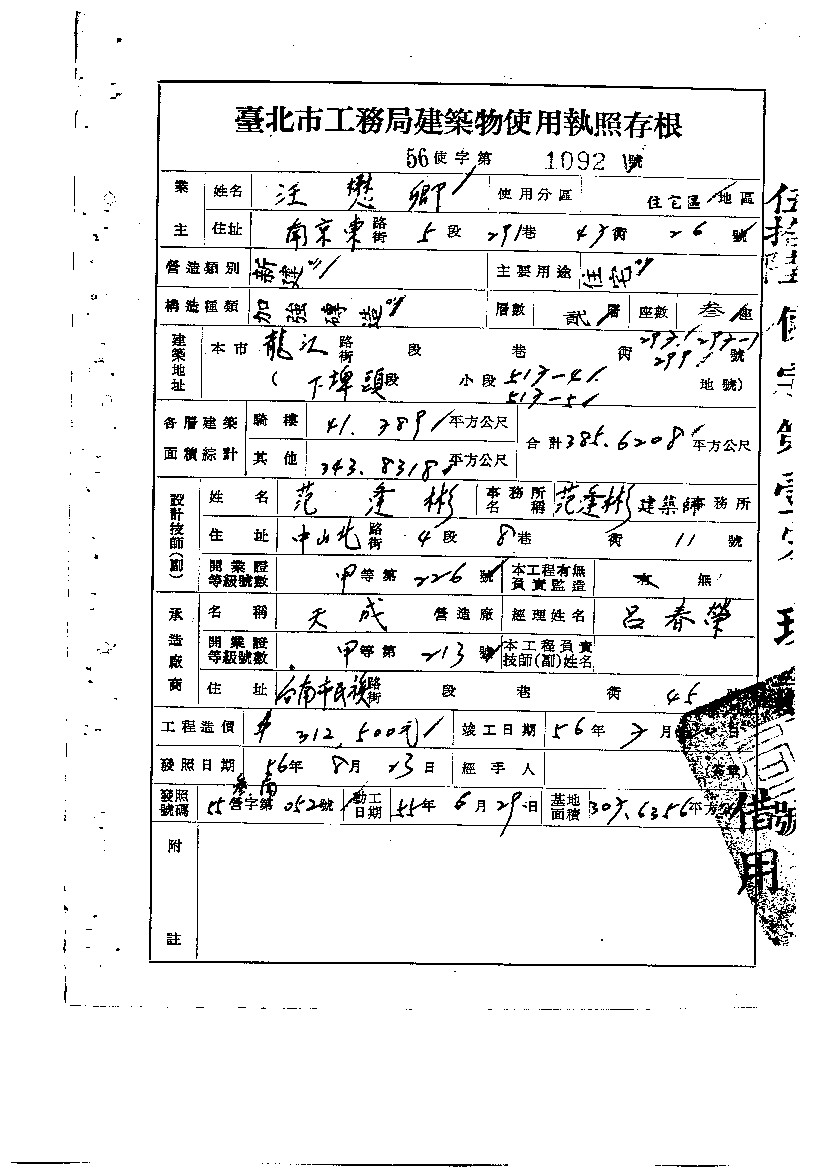 臺北市工務局建築物使用執照存根
56使字第 1092 號
業主 姓名 汪懋卿 使用分區 住宅區 地區
住址 南京東路街 5段 291巷 43衖 26號
營造類別 新建 主要用途 住宅
構造種類 加強磚造 層數 貳層 座數 叁座
建築地址 本市 龍江路街 段 巷 衖 號
(下埤頭段 小段 地號)
各層建築面積綜計 騎樓 平方公尺 合計 385.6208 平方公尺
其他 343.8318 平方公尺
設計技師(副) 姓名 范逢彬 事務所名稱 范逢彬 建築師事務所
住址 中山北路街 4段 8巷 衖 11號
開業證等級號數 甲等第 226 號 本工程有無負責監造 無
承造廠商 名稱 天成 營造廠 經理姓名 呂春榮
開業證等級號數 甲等第 213 號 本工程負責技師(副)姓名
住址 台南市民族路街 段 巷 衖 45
工程造價 312,500元 竣工日期 56年 月 日
發照日期 56年 8月 23日 經手人
發照號碼 55營字第 052號 動工日期 55年 6月 29日 基地面積 平方
附註
借用